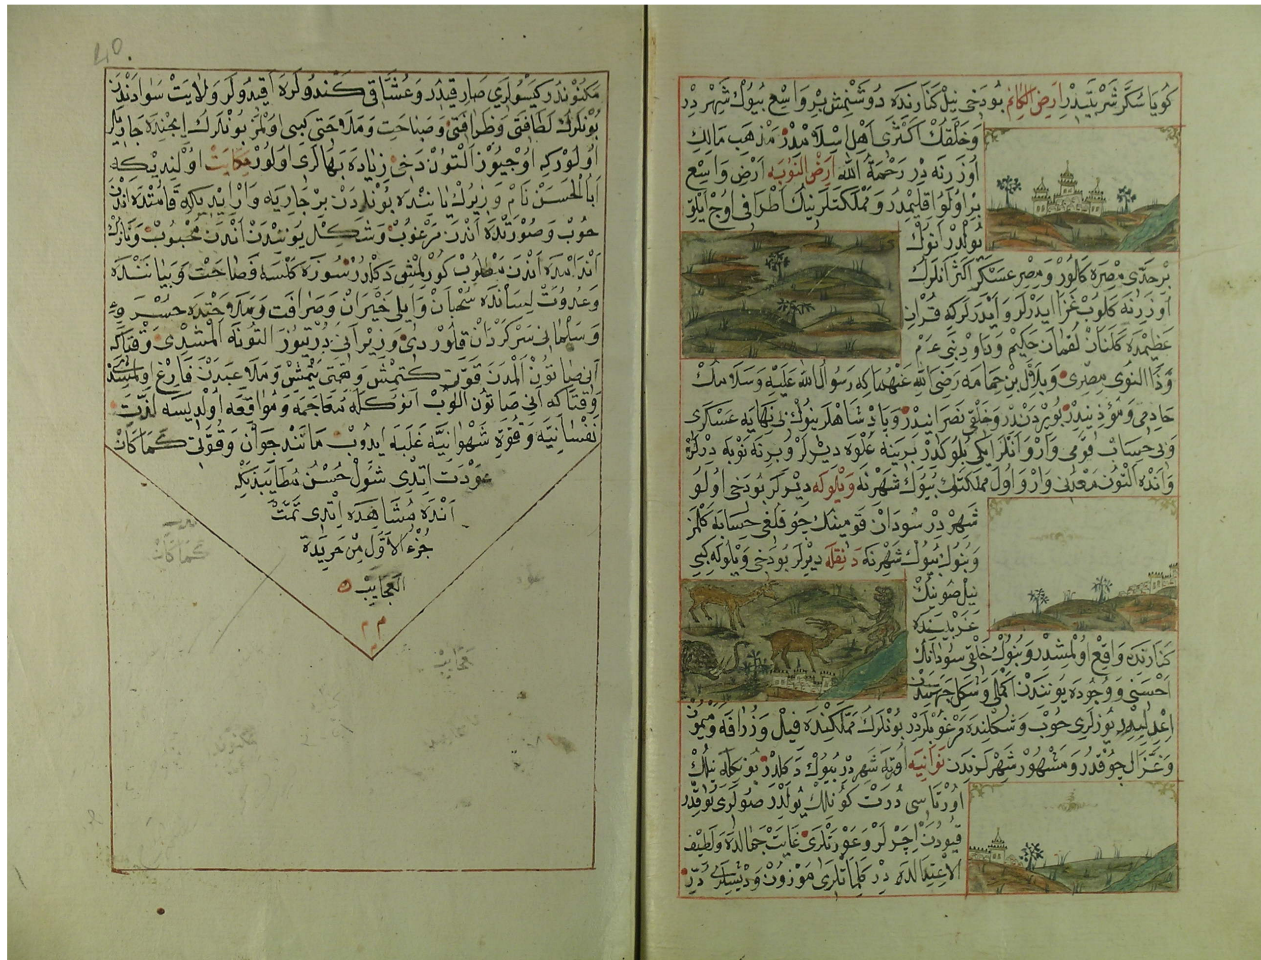 كويا سكر شربتيدر ارض الكانم بو دخى نيل كنارنده دوشنمش بر واسع بيوك شهر در
وخلقنك اكثرى اهل اسلامدر مذهب مالك
اوزرنه در رحمة الله ارض النوبه ارض واسع
بر اولو اقليمدر ومملكتلرينك اطرافى اوچ ايلق
يولدر انوك
بر حدى مصره كلور ومصر عسكرى اكثر انلرك
اوزرينه كلوب غزا ايدرلر وايدرلركه قران
عظيمده كلنان لقمان حكيم وداود نبى عزم
وذا النون مصرى وبلال بن حمامه رضى الله عنهما كه رسول الله عليه وسلامك
خادمى ومؤذنيدر بويردندر وخلقى نصرانيدر وپادشاهلرينوك بى نهايه عسكرى
وبى حساب قومى وار وانلر ايكى بلوكدر برينه علوه ديرلر وبرينه نوبه ديرلر
وانده التون معدنى وار واول مملكتك بيوك شهرينه ويلوله ديرلر بو دخى اولو
شهر در سودان قومينك چوقلغى حسابه كلمز
وبونوك بيوك شهرينه دنقله ديرلر بو دخى ويلوله كبى
نيل صوينك
غربيسنده
كنارنده واقع اولمشدر وبونوك خلقى سودانك
احسنى ووجوده يوننيدن اكملى وشكل جهتيندن
اعدليدر يوزلرى خوب وشكلنده مرغوبلردر بونلرك مملكتنده فيل وزرافه وميمون
وغزال چوقدر ومشهور شهرلرندن نوابيه اورته شهر در بيوك دكلدر بونكله نيلك
اورتاسى درت كونلك يولدر صولرى يوقدر
قيودن ايچرلر وعورتلرى غايت جمالده ولطيف
الاعتدالده در كلماتلرى موزون ودشلرى در
مكنوندر كيسولرى صارقيدر وعشاقى كندولره اقيدولر ولايت سوادندن
بونلرك لطافتى وظرافتى وصباحت وملاحتى كبى اولمز بونلرك ايچنده جاريلر
اولور كه اوچيوز التون دخى زياده بهالرى اولور حكايت اولنديكه
ابا الحسن نام وزيرك ياننده بونلردن بر جاريه وار ايديكه قامتنده اندن
خوب وصورتده اندن مرغوب وشكل يوننيدن اندن محبوب ونازك
اندامده اندن مطلوب كورلمش دكلدر سوزه كلسه فصاحت وبياننده
وعذوبت لسانده سحبان وايلى حيران وصرافت وملاحتده خسرو
وسليمانى سركردان قلور دى وزير انى درتيوز التونه المشدى وقتاكه
انى صاتون المدن قوت كتمش وهمتى يتمش وملاعبدن فارغ اولمشدى
وقتاكه انى صاتون الوب انوكله مجامعه ومواقعه اولديسه لذت
نفسانيه وقوه شهوانيه غلبه ايدوب مانند جوان وقوتى كما كان
عودت اتدى شول حسن مطايبه كه
انده مشاهده اتدى تمت
جزء الاول من خريدة
العجايب
كما كان